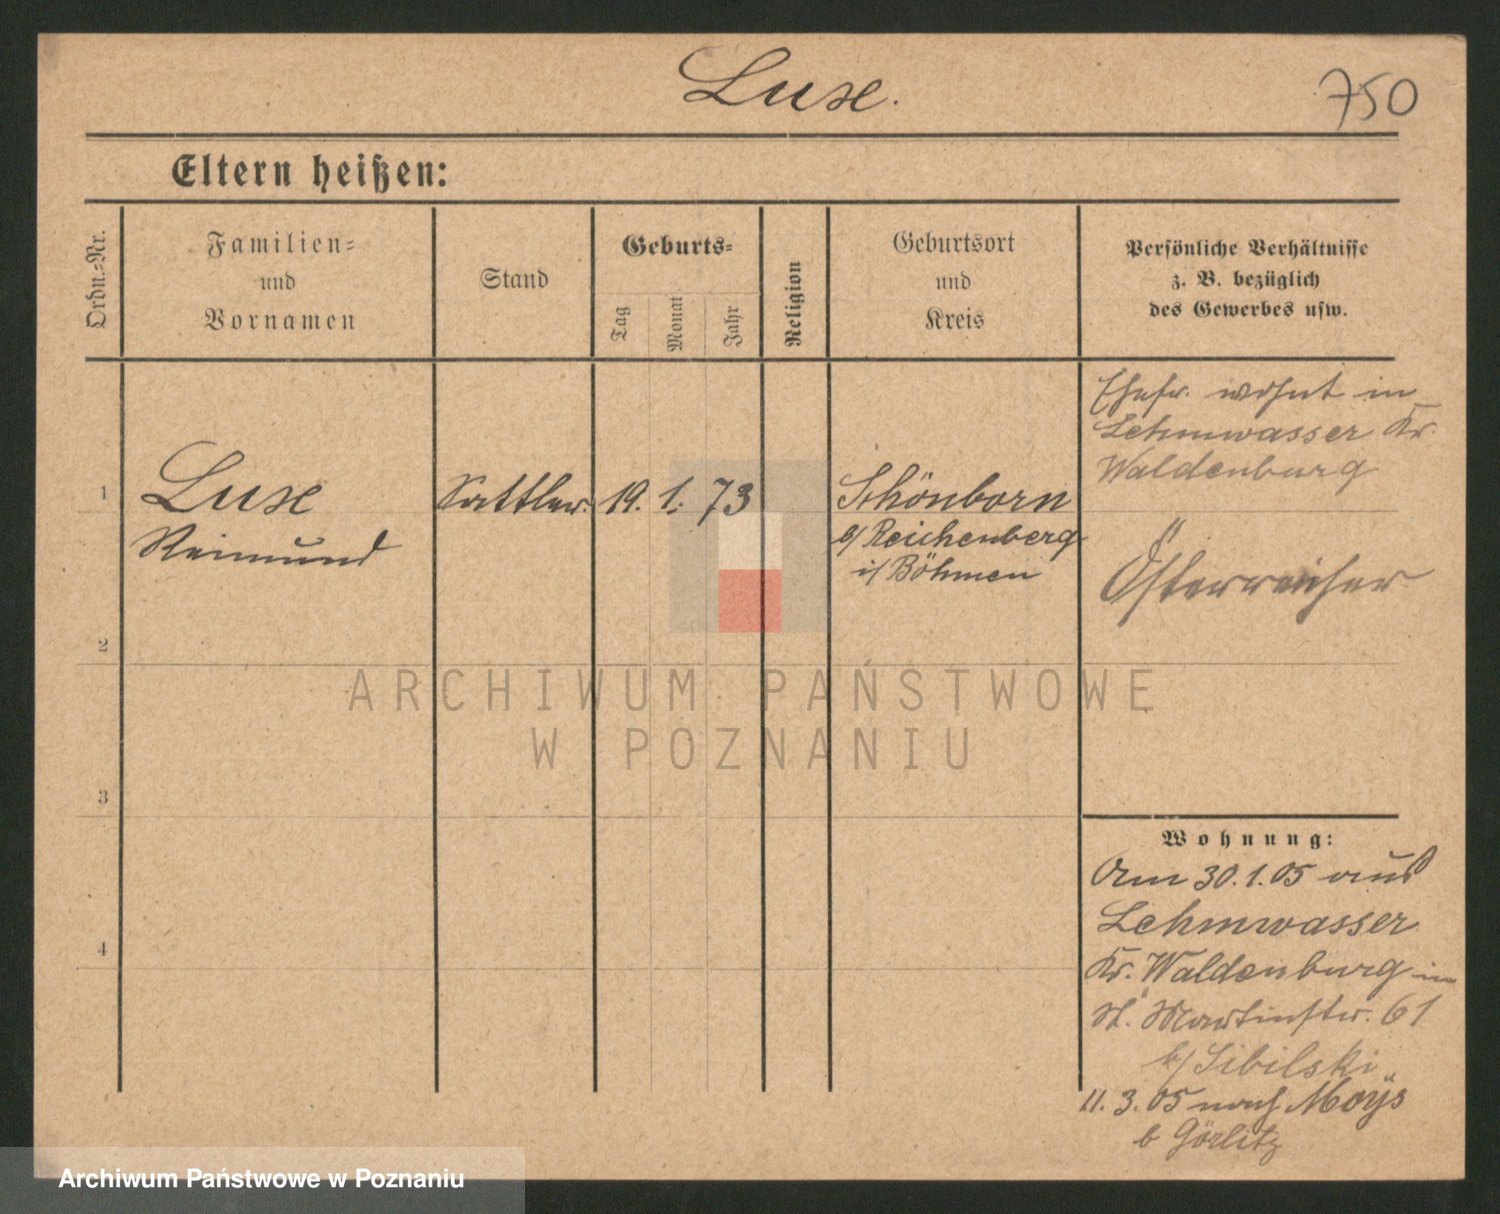 Luse.
750
Eltern heißen:
Ordn.=Nr.
Familien=
und
Vornamen
Stand
Geburts=
Tag
Monat
Jahr
Religion
Geburtsort
und
Kreis
Persönliche Verhältnisse
z. B. bezüglich
des Gewerbes usw.
Ehefr. wohnt in
Lehmwasser Kr.
Waldenburg
1
Luse
Reimund
Sattler.
19. 1. 73
Schönborn
b/ Reichenberg
i/ Böhmen
Österreicher
2
ARCHIWUM PAŃSTWOWE
W POZNANIU
3
Wohnung:
Am 30.1.05 aus
Lehmwasser
4
Kr. Waldenburg in
St. Martinstr. 61
b/ Sibilski
11. 3. 05 nach Moÿs
b Görlitz
Archiwum Państwowe w Poznaniu